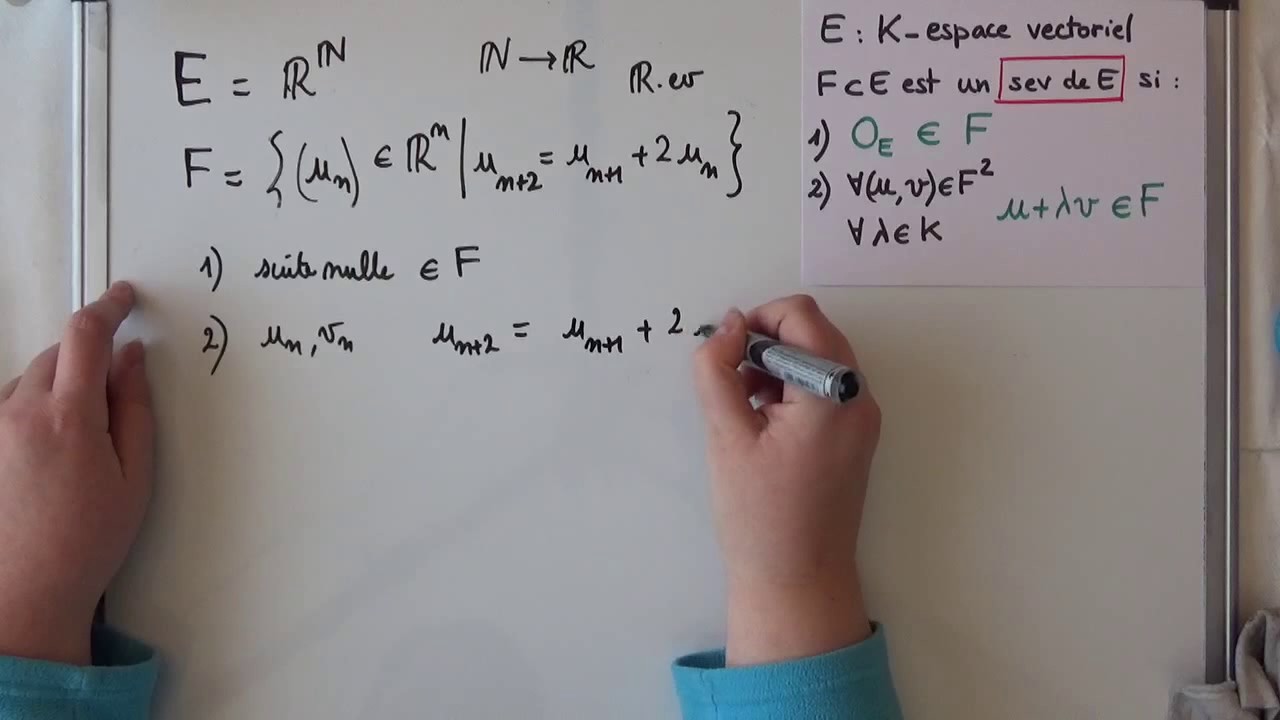 E = ℝ^ℕ ℕ → ℝ ℝ.ev
F = {(u_n) ∈ ℝ^n | u_{n+2} = u_{n+1} + 2 u_n}
1) suite nulle ∈ F
2) u_n, v_n u_{n+2} = u_{n+1} + 2
E : K-espace vectoriel
F ⊂ E est un sev de E si :
1) O_E ∈ F
2) ∀(u, v) ∈ F² u + λv ∈ F
∀ λ ∈ K